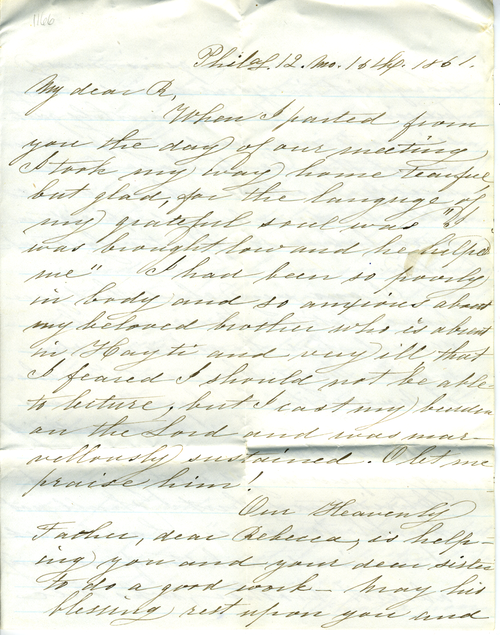 1166
Philad. 12. mo. 16th. 1861.
My dear R,
When I parted from
you the day of our meeting
I took my way home tearful
but glad, for the language of
my grateful soul was "I
was brought low and he helped
me" I had been so poorly
in body and so anxious about
my beloved brother who is absent
in Hayti and very ill that
I feared I should not be able
to lecture, but I cast my burden
on the Lord and was mar-
vellously sustained. O let me
praise him!
Our Heavenly
Father, dear Rebecca, is help-
ing you and your dear sister
to do a good work - May his
blessing rest upon you and